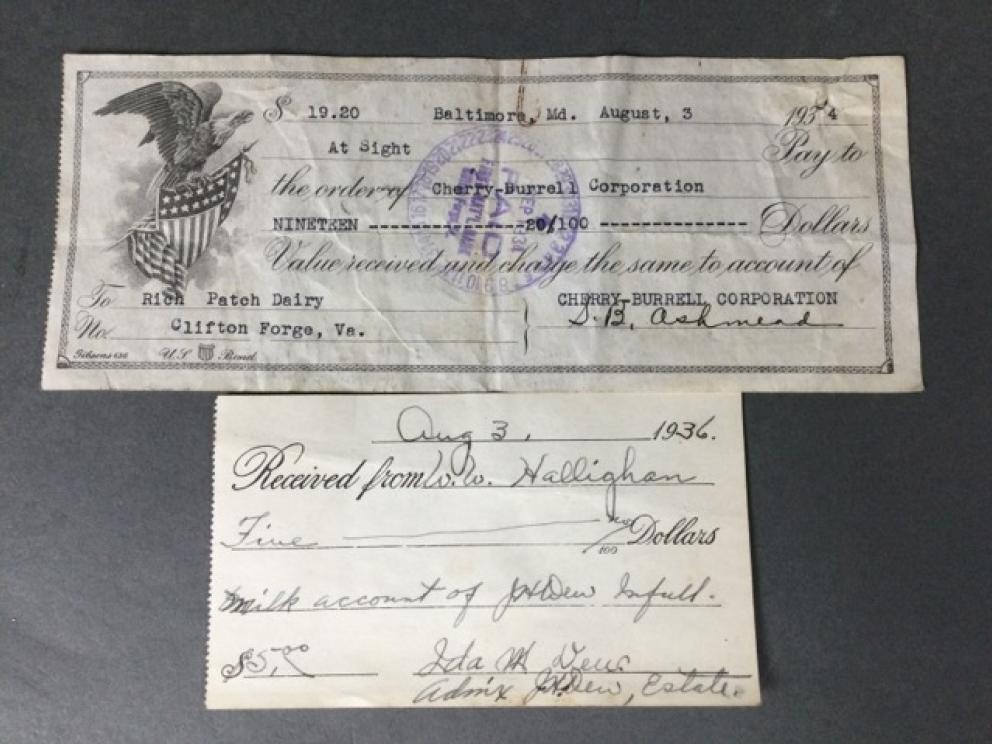 $ 19.20 Baltimore, Md. August, 3 1934
At Sight Pay to
the order of Cherry-Burrell Corporation
NINETEEN ------------------20/100 --------------- Dollars
PAID
Value received and charge the same to account of
To Rich Patch Dairy CHERRY-BURRELL CORPORATION
No. Clifton Forge, Va. S. B. Ashmead
Gibsons 636 U.S. Bond
Aug 3, 1936.
Received from W. W. Hallighan
Five no/100 Dollars
Milk account of J H Dew Infull.
$5.00 Ida M Dew
Adm'x J.H. Dew, Estate.